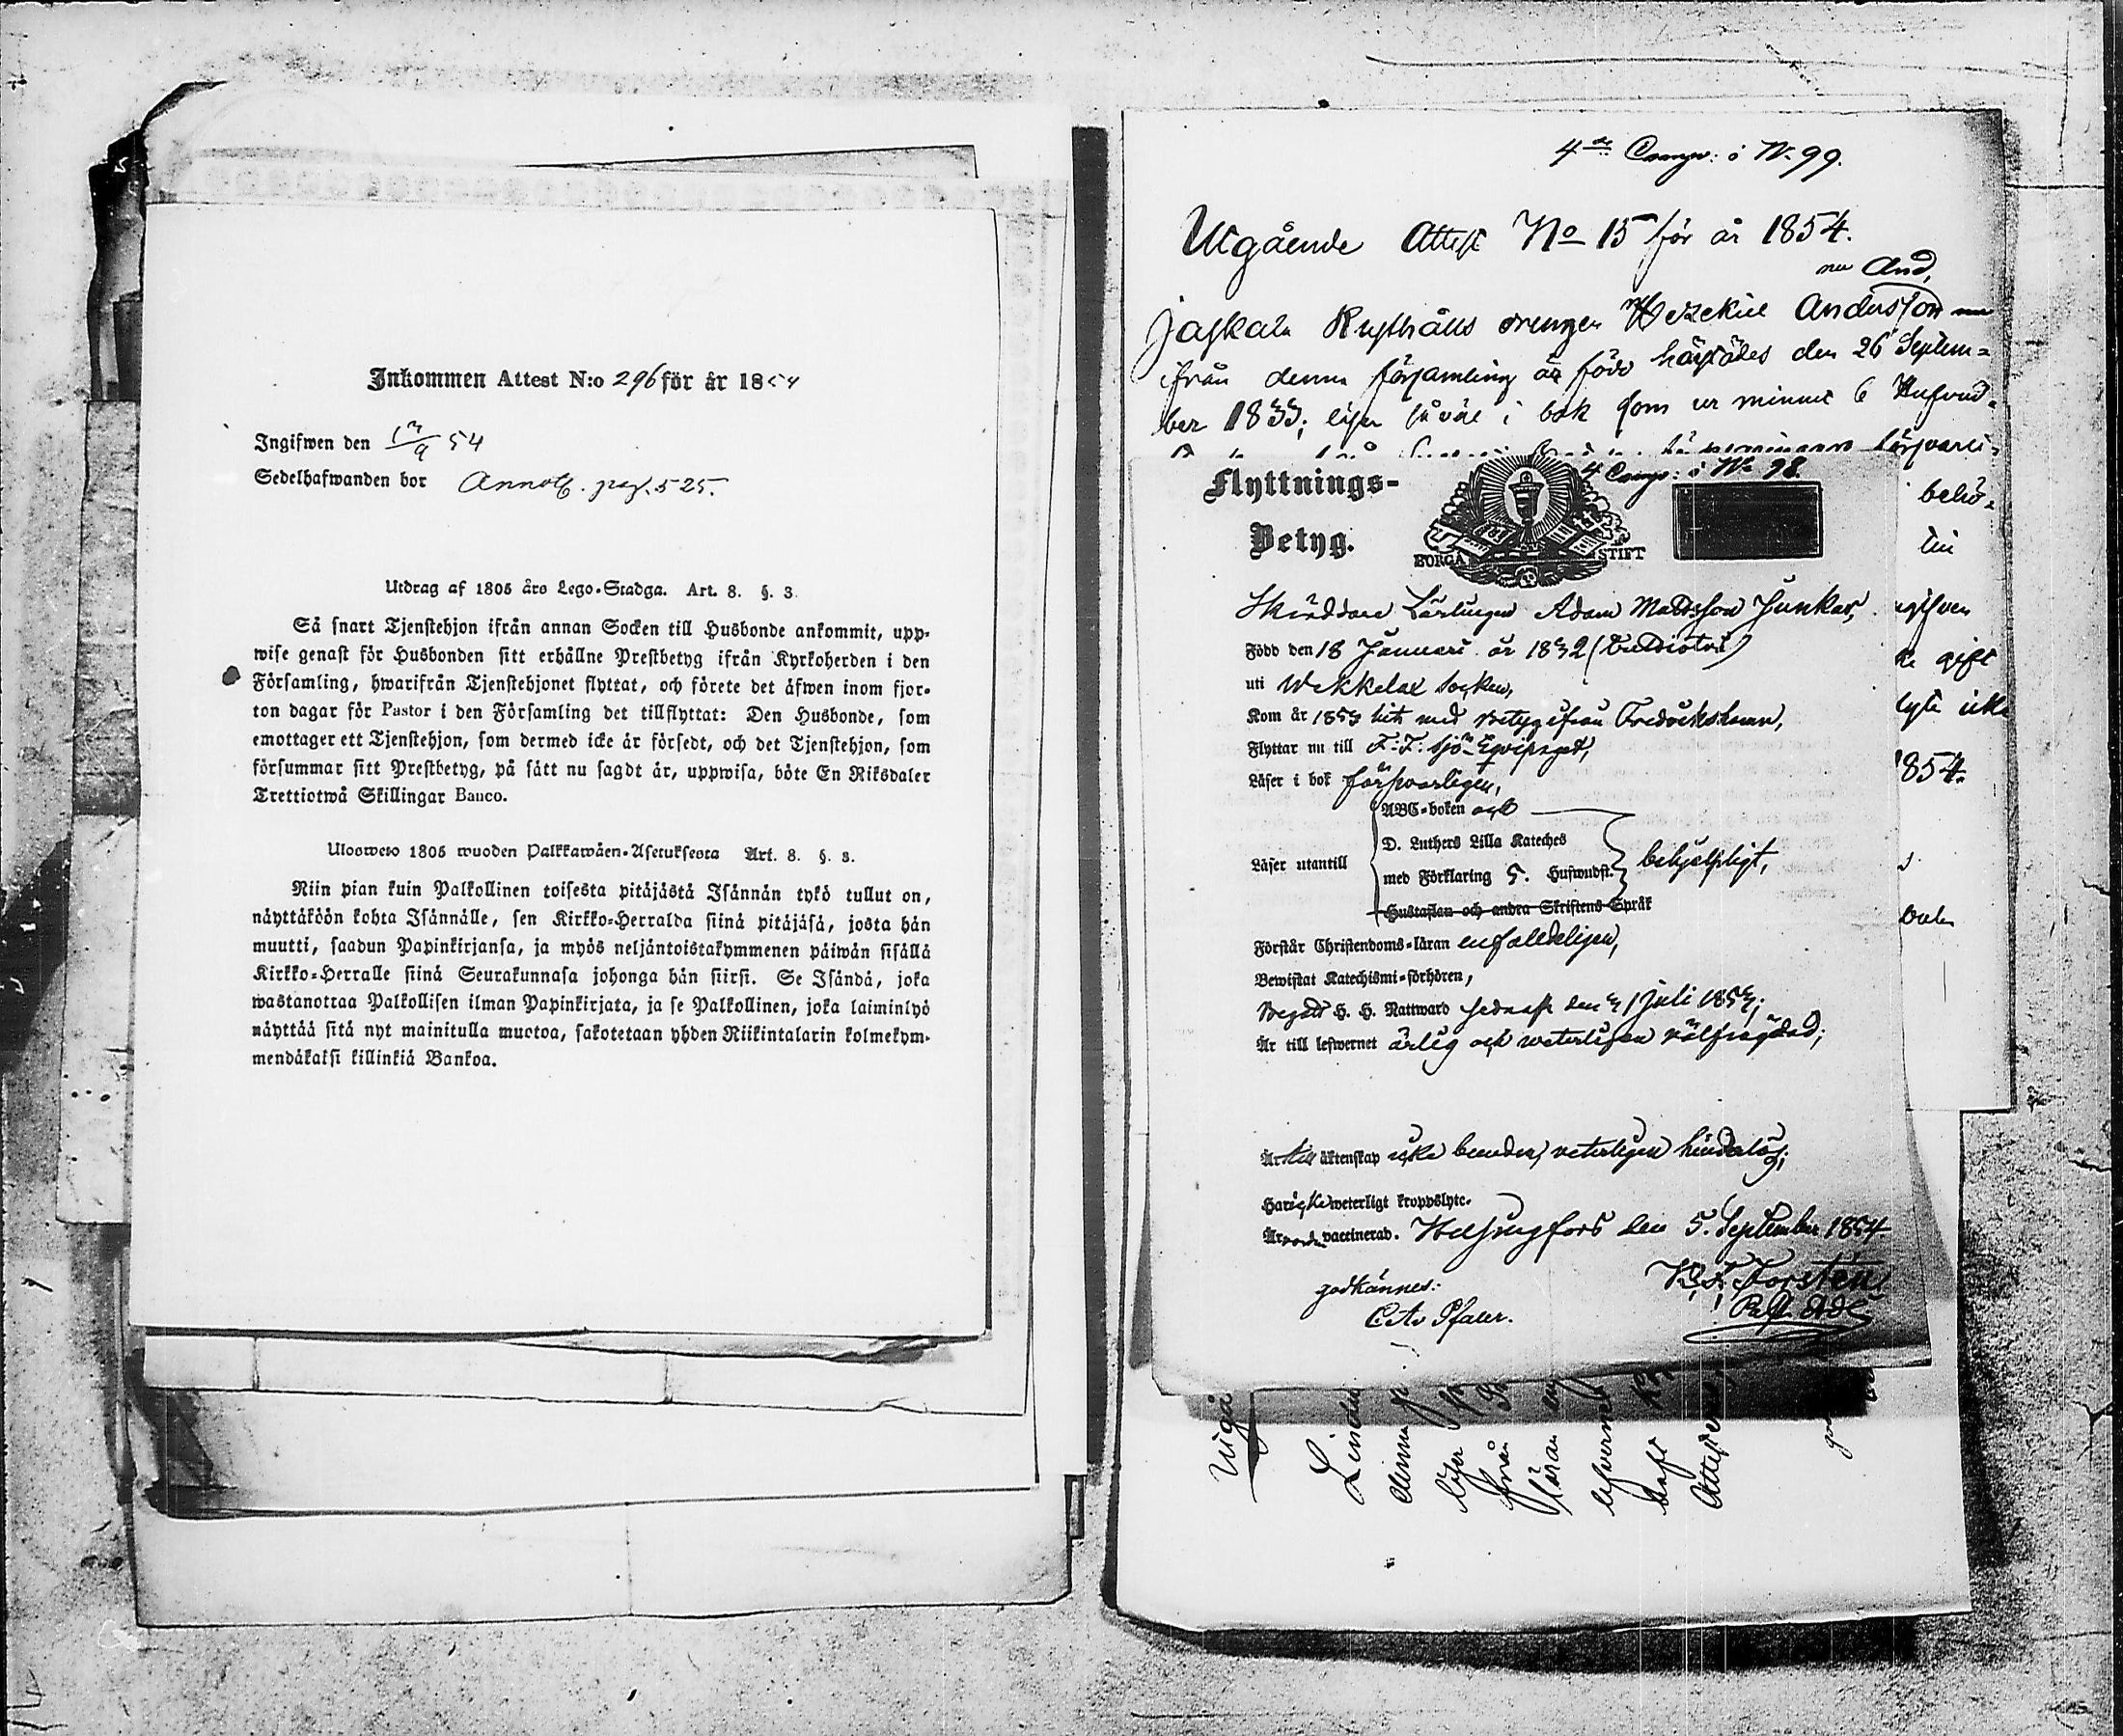 Inkommen Attest N:o 296 för år 1854
Ingifwen den 13/9 54
Sedelhafwanden bor Annott. pag. 525.
Utdrag af 1805 års Lego-Stadga. Art. 8. §. 3.
Så snart Tjenstehjon ifrån annan Socken till Husbonde ankommit, upp-
wise genast för Husbonden sitt erhållne Prestbetyg ifrån Kyrkoherden i den
Församling, hwarifrån Tjenstehjonet flyttat, och förete det äfwen inom fjor-
ton dagar för Pastor i den Församling det tillflyttat: Den Husbonde, som
emottager ett Tjenstehjon, som dermed icke är försedt, och det Tjenstehjon, som
försummar sitt Prestbetyg, på sätt nu sagdt är, uppwisa, böte En Riksdaler
Trettiotwå Skillingar Banco.
Ulosweto 1805 wuoden Palkkawäen-Asetuksesta Art. 8. §. 3.
Niin pian kuin Palkollinen toisesta pitäjästä Isännän tykö tullut on,
näyttäköön kohta Isännälle, sen Kirkko-Herralda siinä pitäjäsä, josta hän
muutti, saadun Papinkirjansa, ja myös neljäntoistakymmenen päiwän sisällä
Kirkko-Herralle siinä Seurakunnasa johonga hän siirsi. Se Isändä, joka
wastanottaa Palkollisen ilman Papinkirjata, ja se Palkollinen, joka laiminlyö
näyttää sitä nyt mainitulla muotoa, sakotetaan yhden Riikintalarin kolmekym-
mendäkaksi killinkiä Bankoa.
4de Comp: o N. 99.
Utgående Attest No 15 för år 1854.
And,
Jaskala Rusthålls drengen Hezekiel Andersson
ifrån denna församling är född härstädes den 26 Septem-
ber 1833; läser så väl i bok som ur minnet 6 Hufvud-
försvarli-
Flyttnings-
4 Comp: o No 98.
Betyg.
BORGÅ STIFT
behö-
Skräddare Lärlingen Adam Mattsson Junkar,
ngifven
Född den 18 Januari år 1832
uti Wekkelax Socken,
gift
Kom år 1853 hit med betyg ifrån Fredrikshamn,
lyte icke
Flyttar nu till F: F: Sjö Equipaget,
Läser i bok försvarligen,
854.
ABC-boken och
D. Luthers Lilla Kateches
Läser utantill
med Förklaring 5. Hufwudst.
behjelpligt,
Hustaflan och andra Skriftens Språk
Förstår Christendoms-läran enfaldeligen,
Bewistat Katechismi-förhören,
Begått H. H. Nattward sednast den 31 Juli 1853;
Är till lefwernet ärlig och veterligen välfrägdad;
Är till äktenskap icke bunden, veterligen hinderlös;
Har icke weterligt kroppslyte.
Är vaccinerad. Helsingfors den 5. September 1854
K. F. Forstén
godkännes: